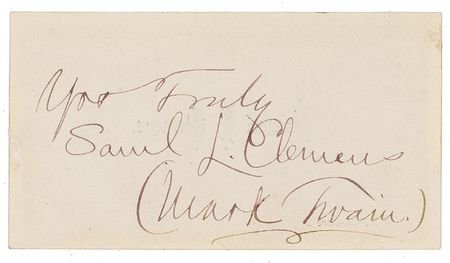 Yrs Truly
Saml L. Clemens
(Mark Twain.)